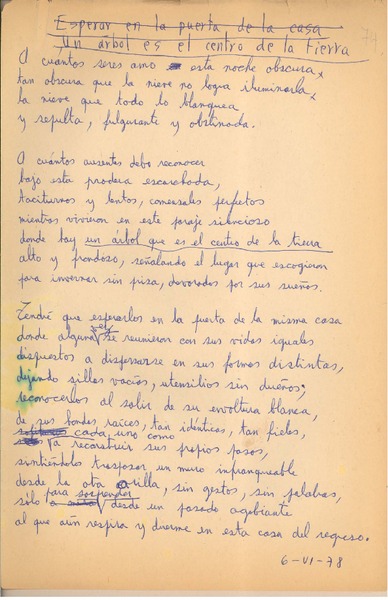 Esperar en la puerta de la casa
Un árbol es el centro de la tierra
74
A cuantos seres amo esta noche obscura,
tan obscura que la nieve no logra iluminarla,
la nieve que todo lo blanquea
y sepulta, fulgurante y obstinada.
A cuántos ausentes debo reconocer
bajo esta pradera escarchada,
taciturnos y lentos, comensales perfectos
mientras vivieron en este paraje silencioso
donde hay un árbol que es el centro de la tierra
alto y frondoso, señalando el lugar que escogieron
para invernar sin prisa, devorados por sus sueños.
Tendré que esperarlos en la puerta de la misma casa
donde alguna vez se reunieron con sus vidas iguales
dispuestos a dispersarse en sus formas distintas,
dejando sillas vacías, utensilios sin dueños;
reconocerlos al salir de su envoltura blanca,
de sus hondas raíces, tan idénticos, tan fieles,
cada uno como
a reconstruir sus propios pasos,
sintiéndolo traspasar un muro infranqueable
desde la otra orilla, sin gestos, sin palabras,
para sorprender
sólo a desde un pasado agobiante
al que aún respira y duerme en esta casa del regreso.
6-VI-78